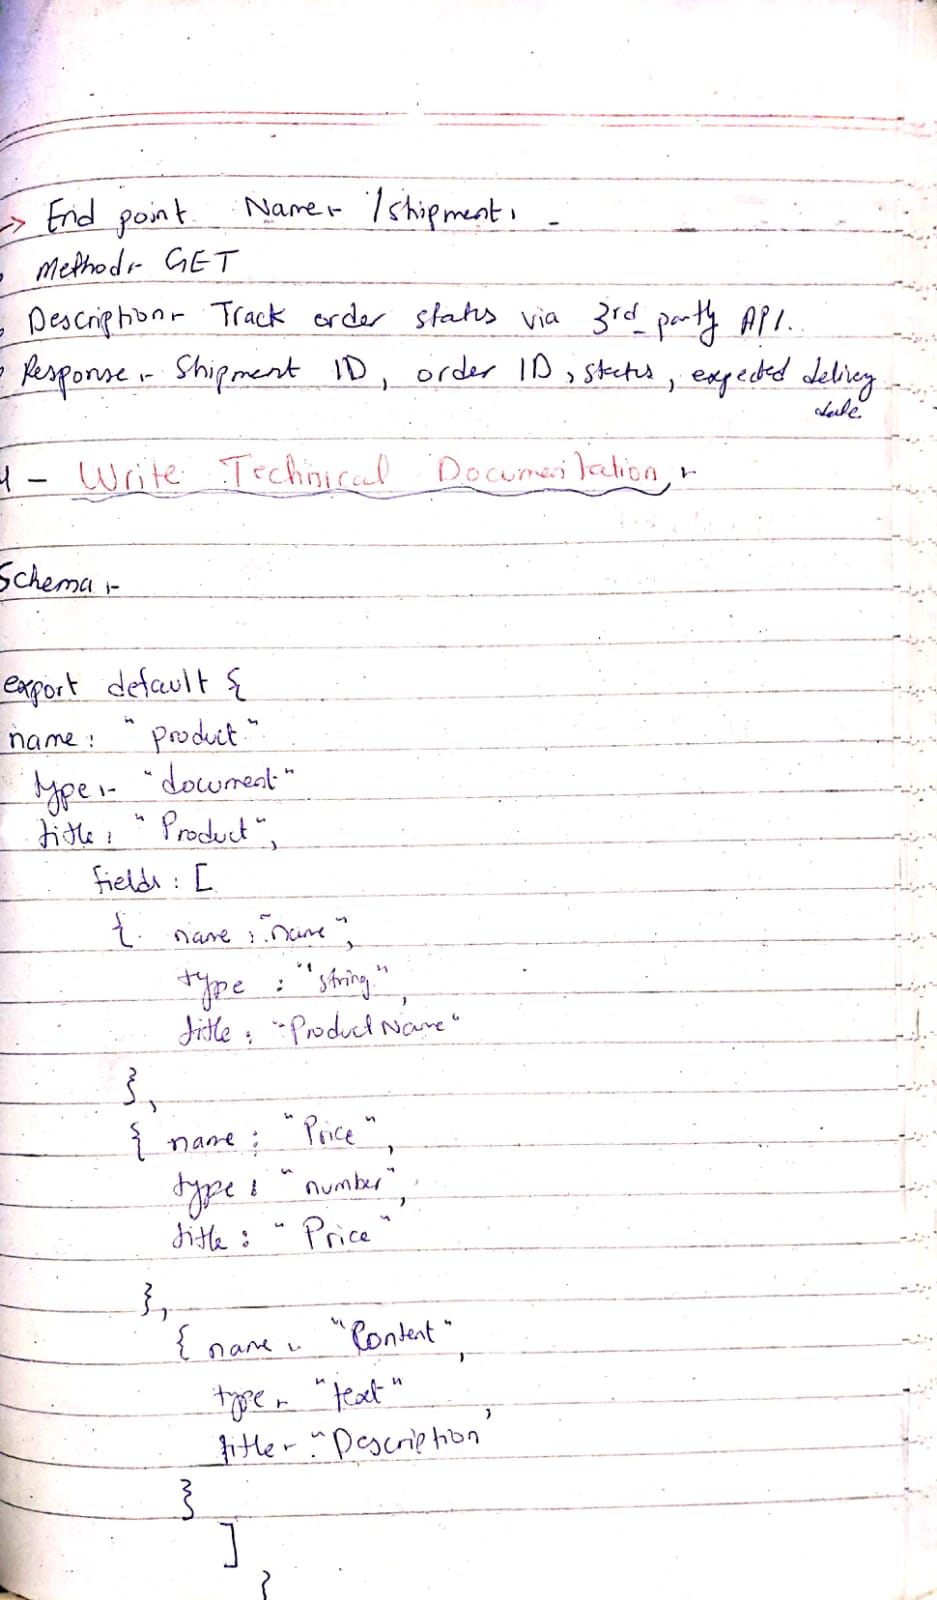 → End point Name:- /shipment.
Method:- GET
Description:- Track order status via 3rd-party API.
Response:- Shipment ID, order ID, status, expected delivery
date
4 - Write Technical Documentation:-
Schema:-
export default {
name: "product"
type:- "document"
title: "Product",
fields: [
{ name: "name",
type: "string",
title: "Product Name"
},
{ name: "Price",
type: "number",
title: "Price"
},
{ name:- "Content",
type:- "text",
title:- "Description
}
]
}